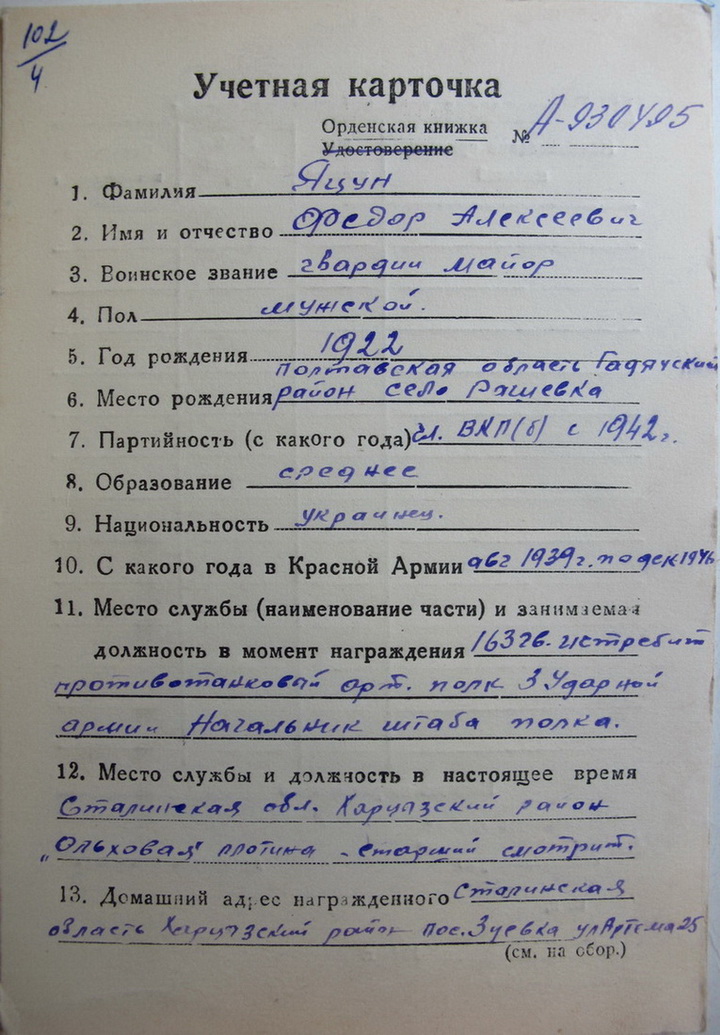 102
4
Учетная карточка
Орденская книжка
Удостоверение
№ А-930495
1. Фамилия Яцун
2. Имя и отчество Федор Алексеевич
3. Воинское звание гвардии майор
4. Пол мужской.
5. Год рождения 1922
полтавская область Гадячский
6. Место рождения район село Рашевка
7. Партийность (с какого года) чл. ВКП(б) с 1942 г.
8. Образование среднее
9. Национальность украинец.
10. С какого года в Красной Армии авг 1939 г. по дек 1946
11. Место службы (наименование части) и занимаемая
должность в момент награждения 163 гв. истребит
противотанковый арт. полк 3 Ударной
армии Начальник штаба полка.
12. Место службы и должность в настоящее время
Сталинская обл. Харцызский район
„Ольховая" плотина - старший смотрит.
13. Домашний адрес награжденного Сталинская
область Харцызский район пос. Зуевка ул Артема 25
(см. на обор.)